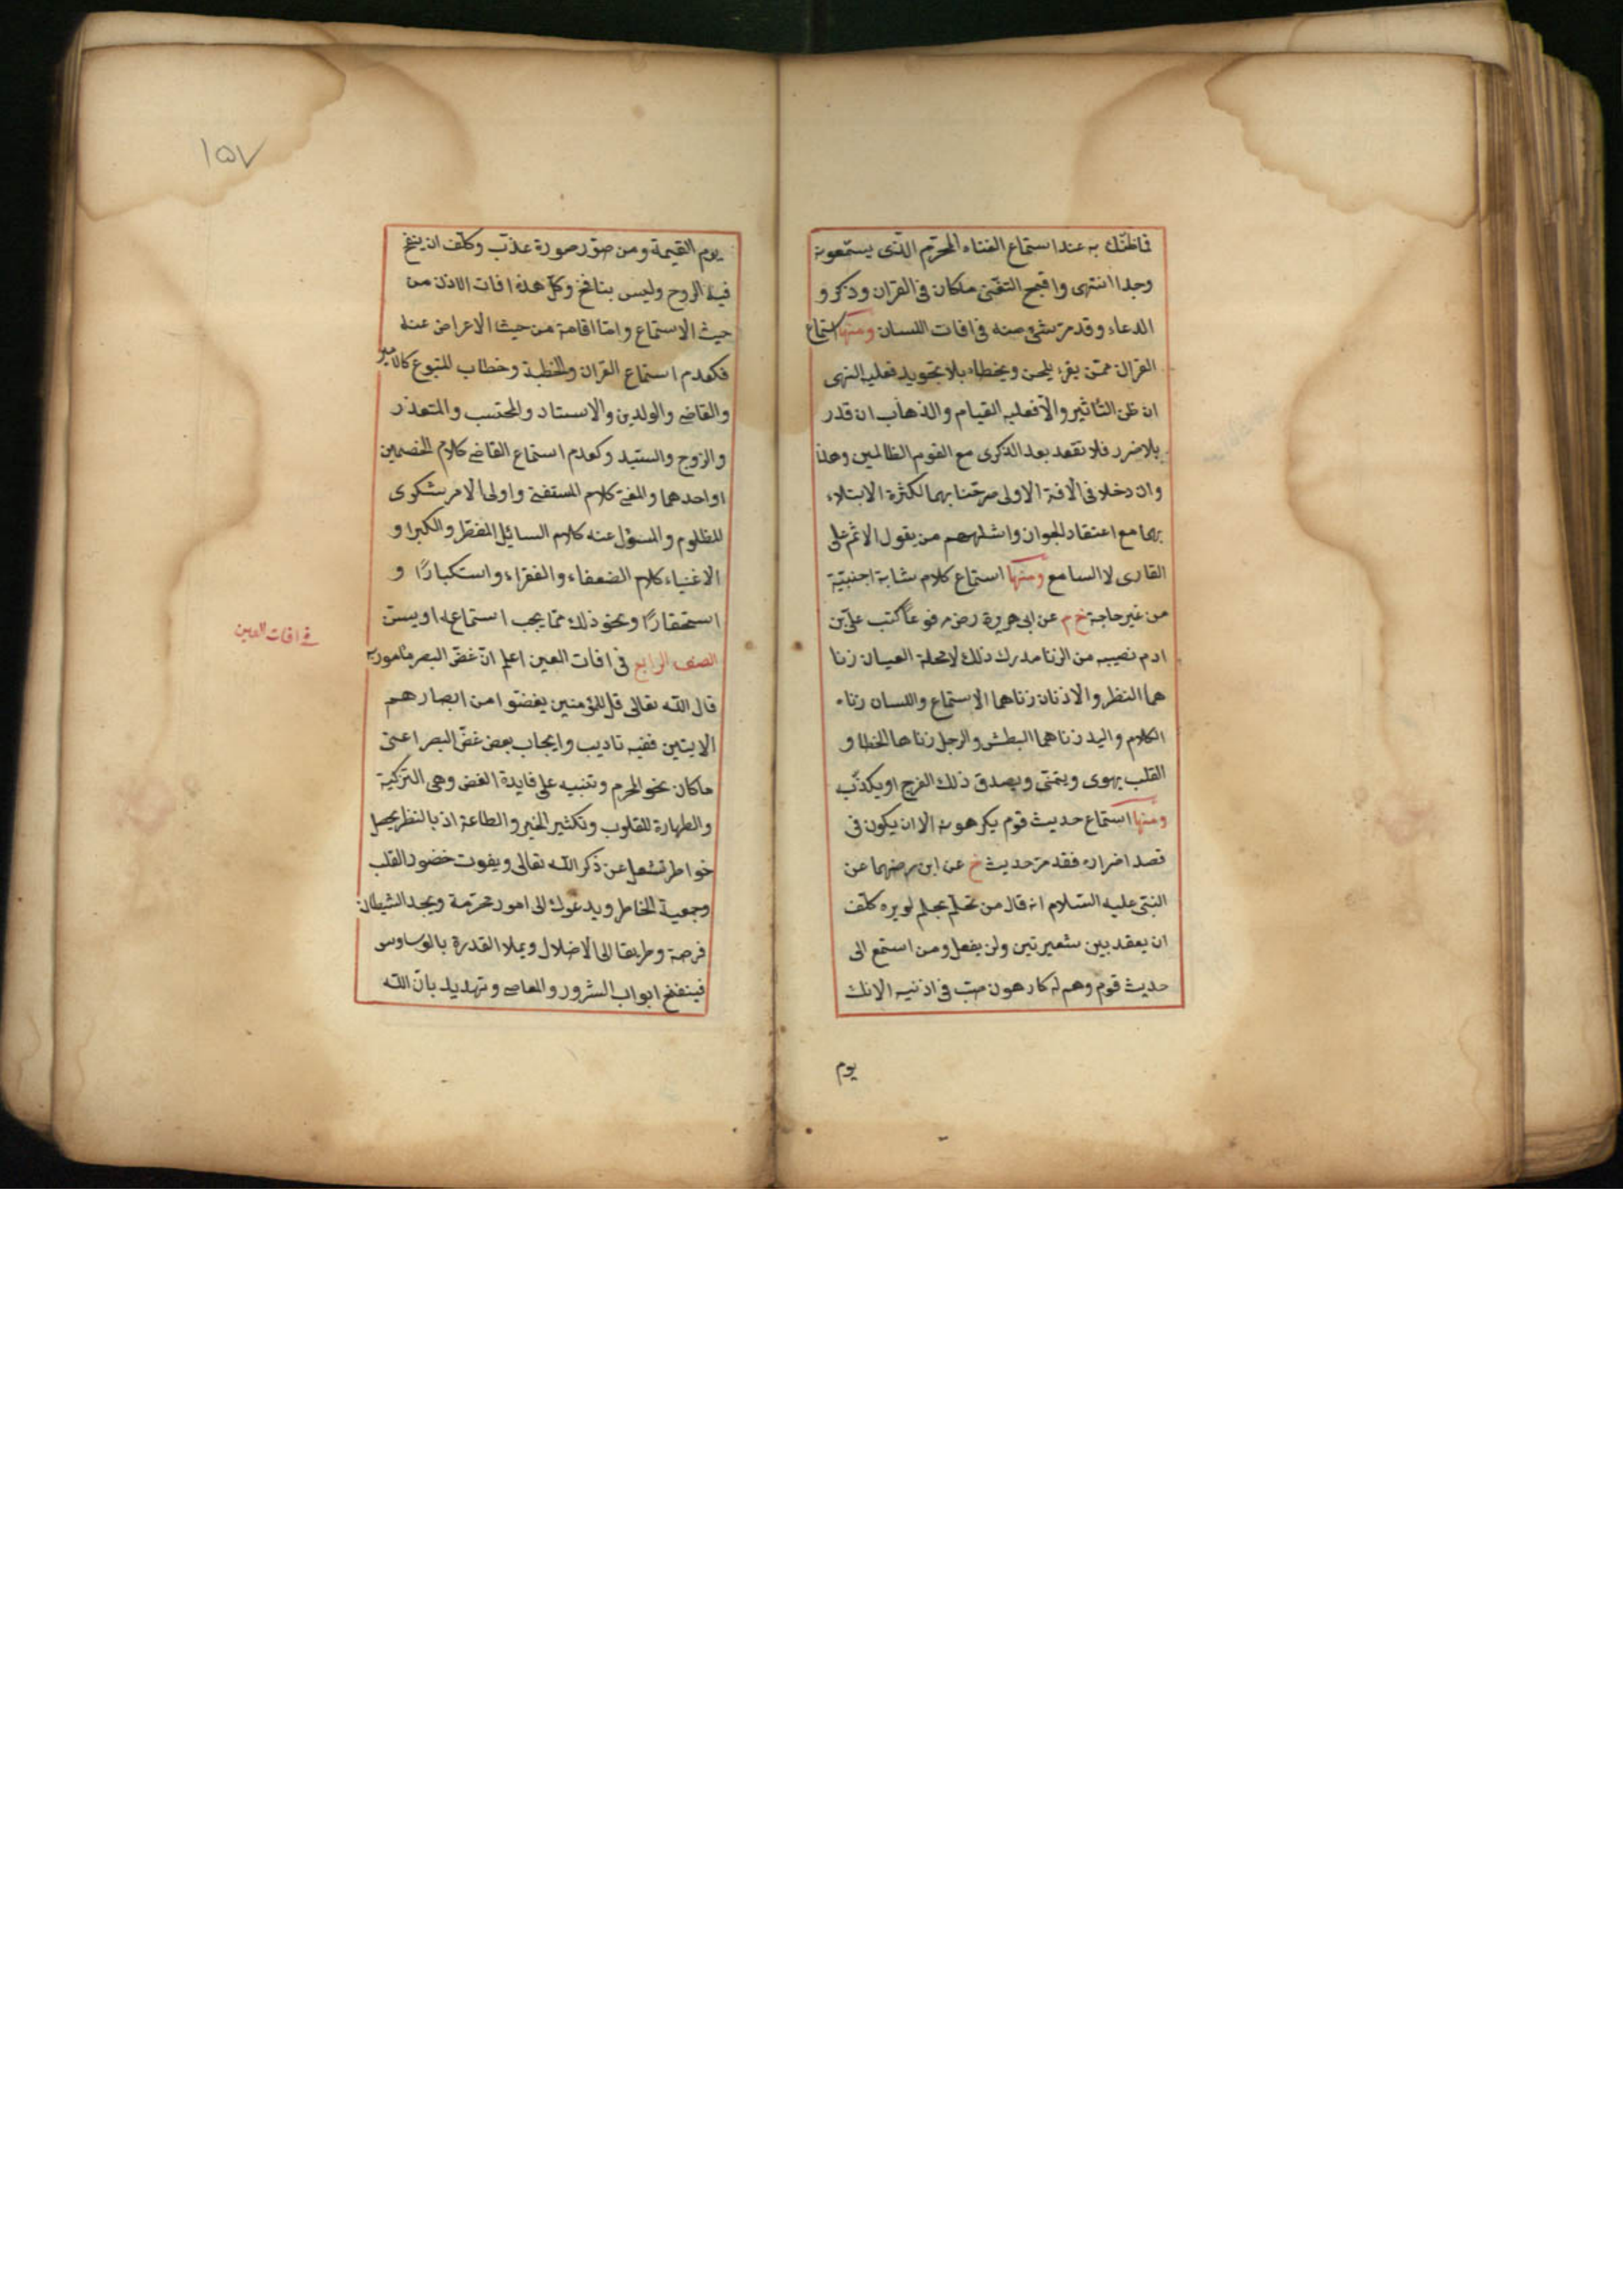 فماظنك به عند استماع الغناء المحرم الذى يسمعونه
وجدا انتهى واقبح التغنى ماكان فى القران وذكر و
الدعاء وقد مر شئ منه فى افات اللسان ومنها استماع
القران ممن يقرء بلحن ويخطاء بلا تجويد فعليه النهى
ان ظن التاثير والا فعليه القيام والذهاب ان قدر
بلا ضرر فلا تقعد بعد الذكرى مع القوم الظالمين وهذا
وان دخلا فى الافة الاولى صرحنا بهما لكثرة الابتلاء
بهما مع اعتقاد الجواز واشلهم من يقول الاثم على
القارى لا السامع ومنها استماع كلام شابة اجنبية
من غير حاجة خ م عن ابى هريرة رض مرفوعا كتب على بن
ادم نصيبه من الزنا مدرك ذلك لا محلة العيسان زنا
هما النظر والاذنان زناهما الاستماع واللسان زناه
الكلام واليد زناهما البطش والرجل زناها الخطا و
القلب يهوى ويتمنى ويصدق ذلك الفرج او يكذب
ومنها استماع حديث قوم يكرهونه الا ان يكون فى
قصد اضراره فقد مر حديث خ عن ابن مرضهما عن
النبى عليه السلام انه قال من تحلم بحلم لو يره كلف
ان يعقد بين شعيرتين ولن يفعل ومن استمع الى
حديث قوم وهم له كارهون صب فى اذنيه الانك
يوم
١٥٧
يوم القيمة ومن صور صورة عذب وكلف ان ينفخ
فيه الروح وليس بنافخ وكل هذه افات الاذن من
حيث الاستماع واما اقامة من حيث الاعراض عنه
فكعدم استماع القران والخطبة وخطاب المتبوع كالامير
والقاضى والولدين والاستاد والمحتسب والمتعذر
والزوج والسيد وكعدم استماع القاضى كلام الخصمين
او احدهما والمفتى كلام المستفتى واولى الامر شكوى
المظلوم والمسؤل عنه كلام السائل المفطر والكبرا و
الاغنياء كلام الضعفاء والفقراء واستكبارا و
استحقارا ونحو ذلك مما يجب استماعه او يسن
الصنف الرابع فى افات العين اعلم ان غض البصر مامور به
فى افات العين
قال الله تعالى قل للمؤمنين يغضوا من ابصارهم
الايتين ففيه تاديب وايجاب بعض غض البصر اعنى
ماكان نحو المحرم وتنبيه على فايدة الغض وهى التزكية
والطهارة للقلوب وتكثير الخير والطاعة اذ بالنظر يحصل
خواطر تشغل عن ذكر الله تعالى ويفوت حضور القلب
وجمعية الخاطر ويدعوك الى امور محرمة ويجد الشيطان
فرصة وطريقا الى الاضلال ويملا القدرة بالوساوس
فينفتح ابواب الشرور والمعاصى وتهديد بان الله